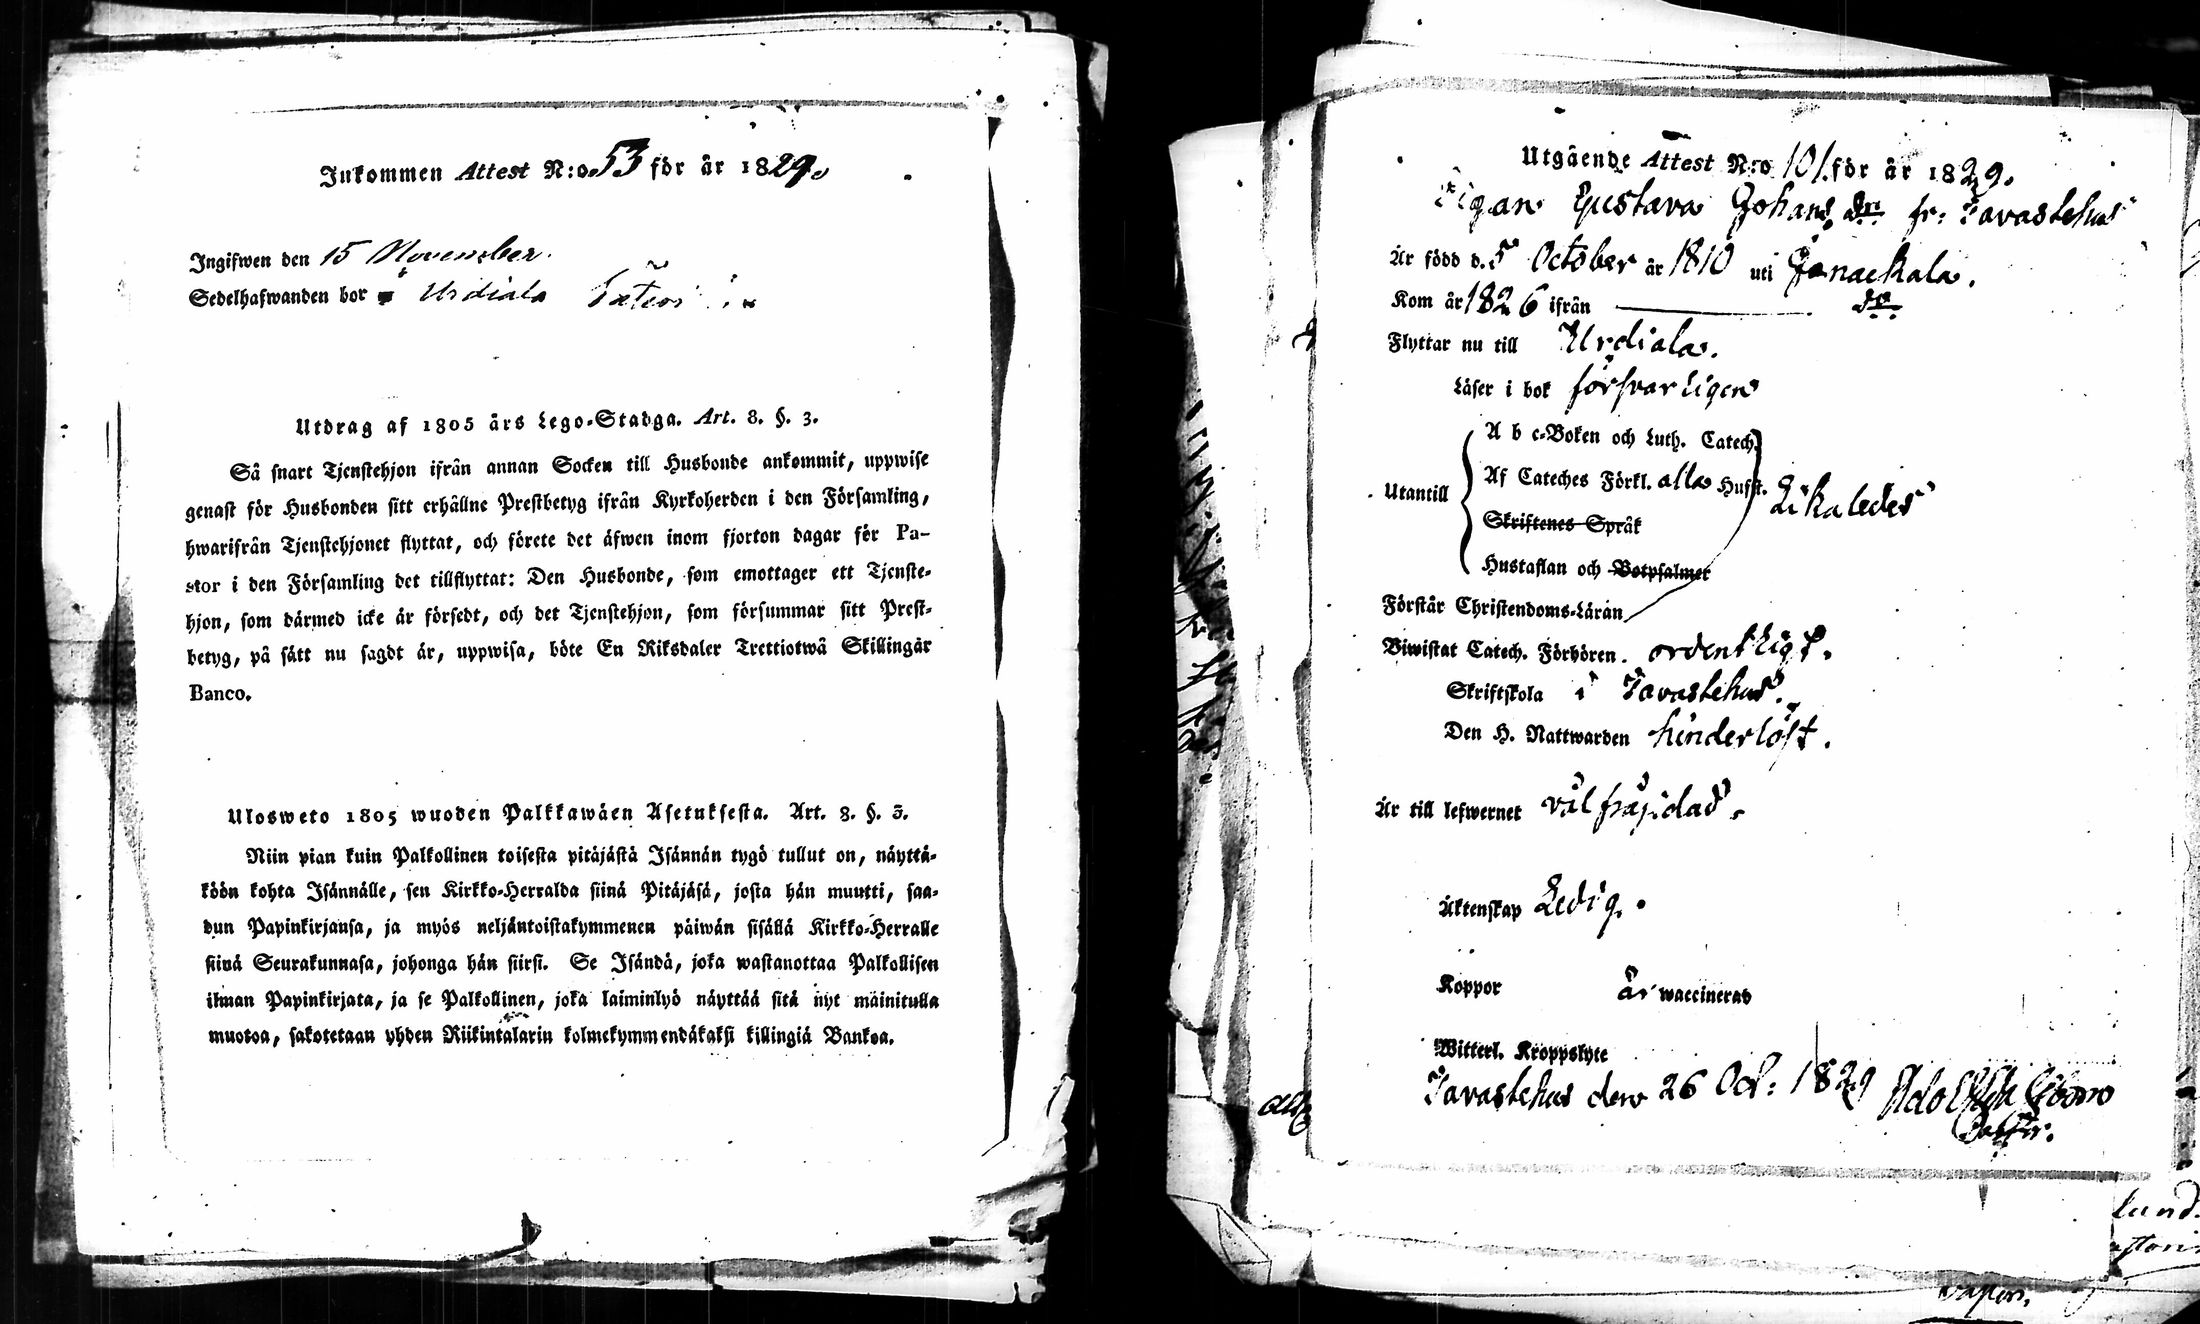 Inkommen Attest N:o 53 för år 1829.
Ingifwen den 15 November.
Sedelhafwanden bor i Urdiala
Utdrag af 1805 års Lego-Stadga. Art. 8. §. 3.
Så snart Tjenstehjon ifrån annan Socken till Husbonde ankommit, uppwise
genast för Husbonden sitt erhållne Prestbetyg ifrån Kyrkoherden i den Församling,
hwarifrån Tjenstehjonet flyttat, och förete det äfwen inom fjorton dagar för Pa-
stor i den Församling det tillflyttat: Den Husbonde, som emottager ett Tjenste-
hjon, som därmed icke är försedt, och det Tjenstehjon, som försummar sitt Prest-
betyg, på sätt nu sagdt är, uppwisa, böte En Riksdaler Trettiotwå Skillingar
Banco.
Ulosweto 1805 wuoden Palkkawäen Asetuksesta. Art. 8. §. 3.
Niin pian kuin Palkollinen toisesta pitäjästä Isännän tygö tullut on, näyttä-
köön kohta Isännälle, sen Kirkko-Herralda siinä Pitäjäsä, josta hän muutti, saa-
dun Papinkirjansa, ja myös neljäntoistakymmenen päiwän sisällä Kirkko-Herralle
siinä Seurakunnasa, johonga hän siirsi. Se Isändä, joka wastanottaa Palkollisen
ilman Papinkirjata, ja se Palkollinen, joka laiminlyö näyttää sitä nyt mainitulla
muotoa, sakotetaan yhden Riikintalarin kolmekymmendäkaksi killingiä Bankoa.
Utgående Attest N:o 101. för år 1829.
Pigan Gustava Johans dr. fr: Tavastehus
Är född d. 5 October år 1810 uti Janackala.
Kom år 1826 ifrån do
Flyttar nu till Urdiala.
Läser i bok försvarligen
A b c-Boken och Luth. Catech.
Utantill Af Cateches Förkl. alla Hufst. Likaledes
Skriftenes Språk
Hustaflan och Botpsalmer
Förstår Christendoms-Läran
Biwistat Catech. Förhören. ordentligt.
Skriftskola i Tavastehus.
Den H. Nattwarden hinderlöst.
Är till lefwernet väl fräjdad.
Äktenskap Ledig.
Koppor är waccinerad
Witterl. Kroppslyte
Tavastehus den 26 Oct: 1829